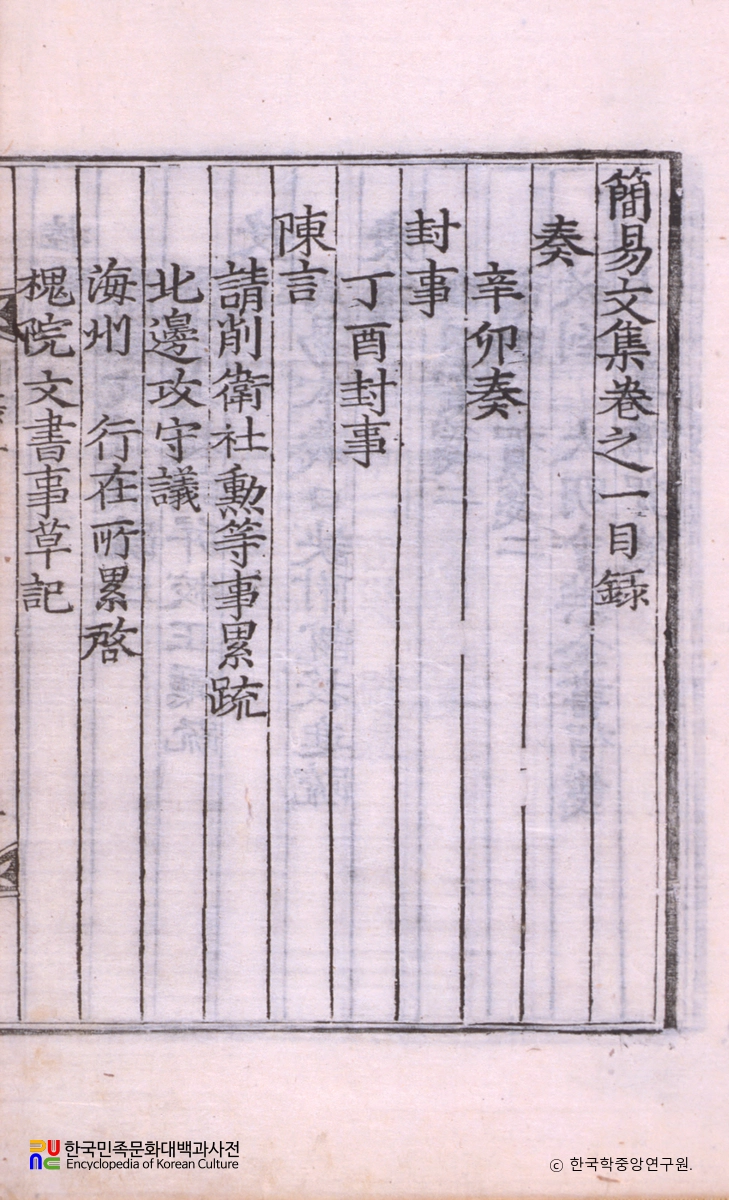 簡易文集卷之一目録
奏
辛卯奏
封事
丁酉封事
陳言
請削衛社勳等事累䟽
北邊攻守議
海州 行在所累啓
槐院文書事草記
한국민족문화대백과사전
Encyclopedia of Korean Culture
© 한국학중앙연구원.